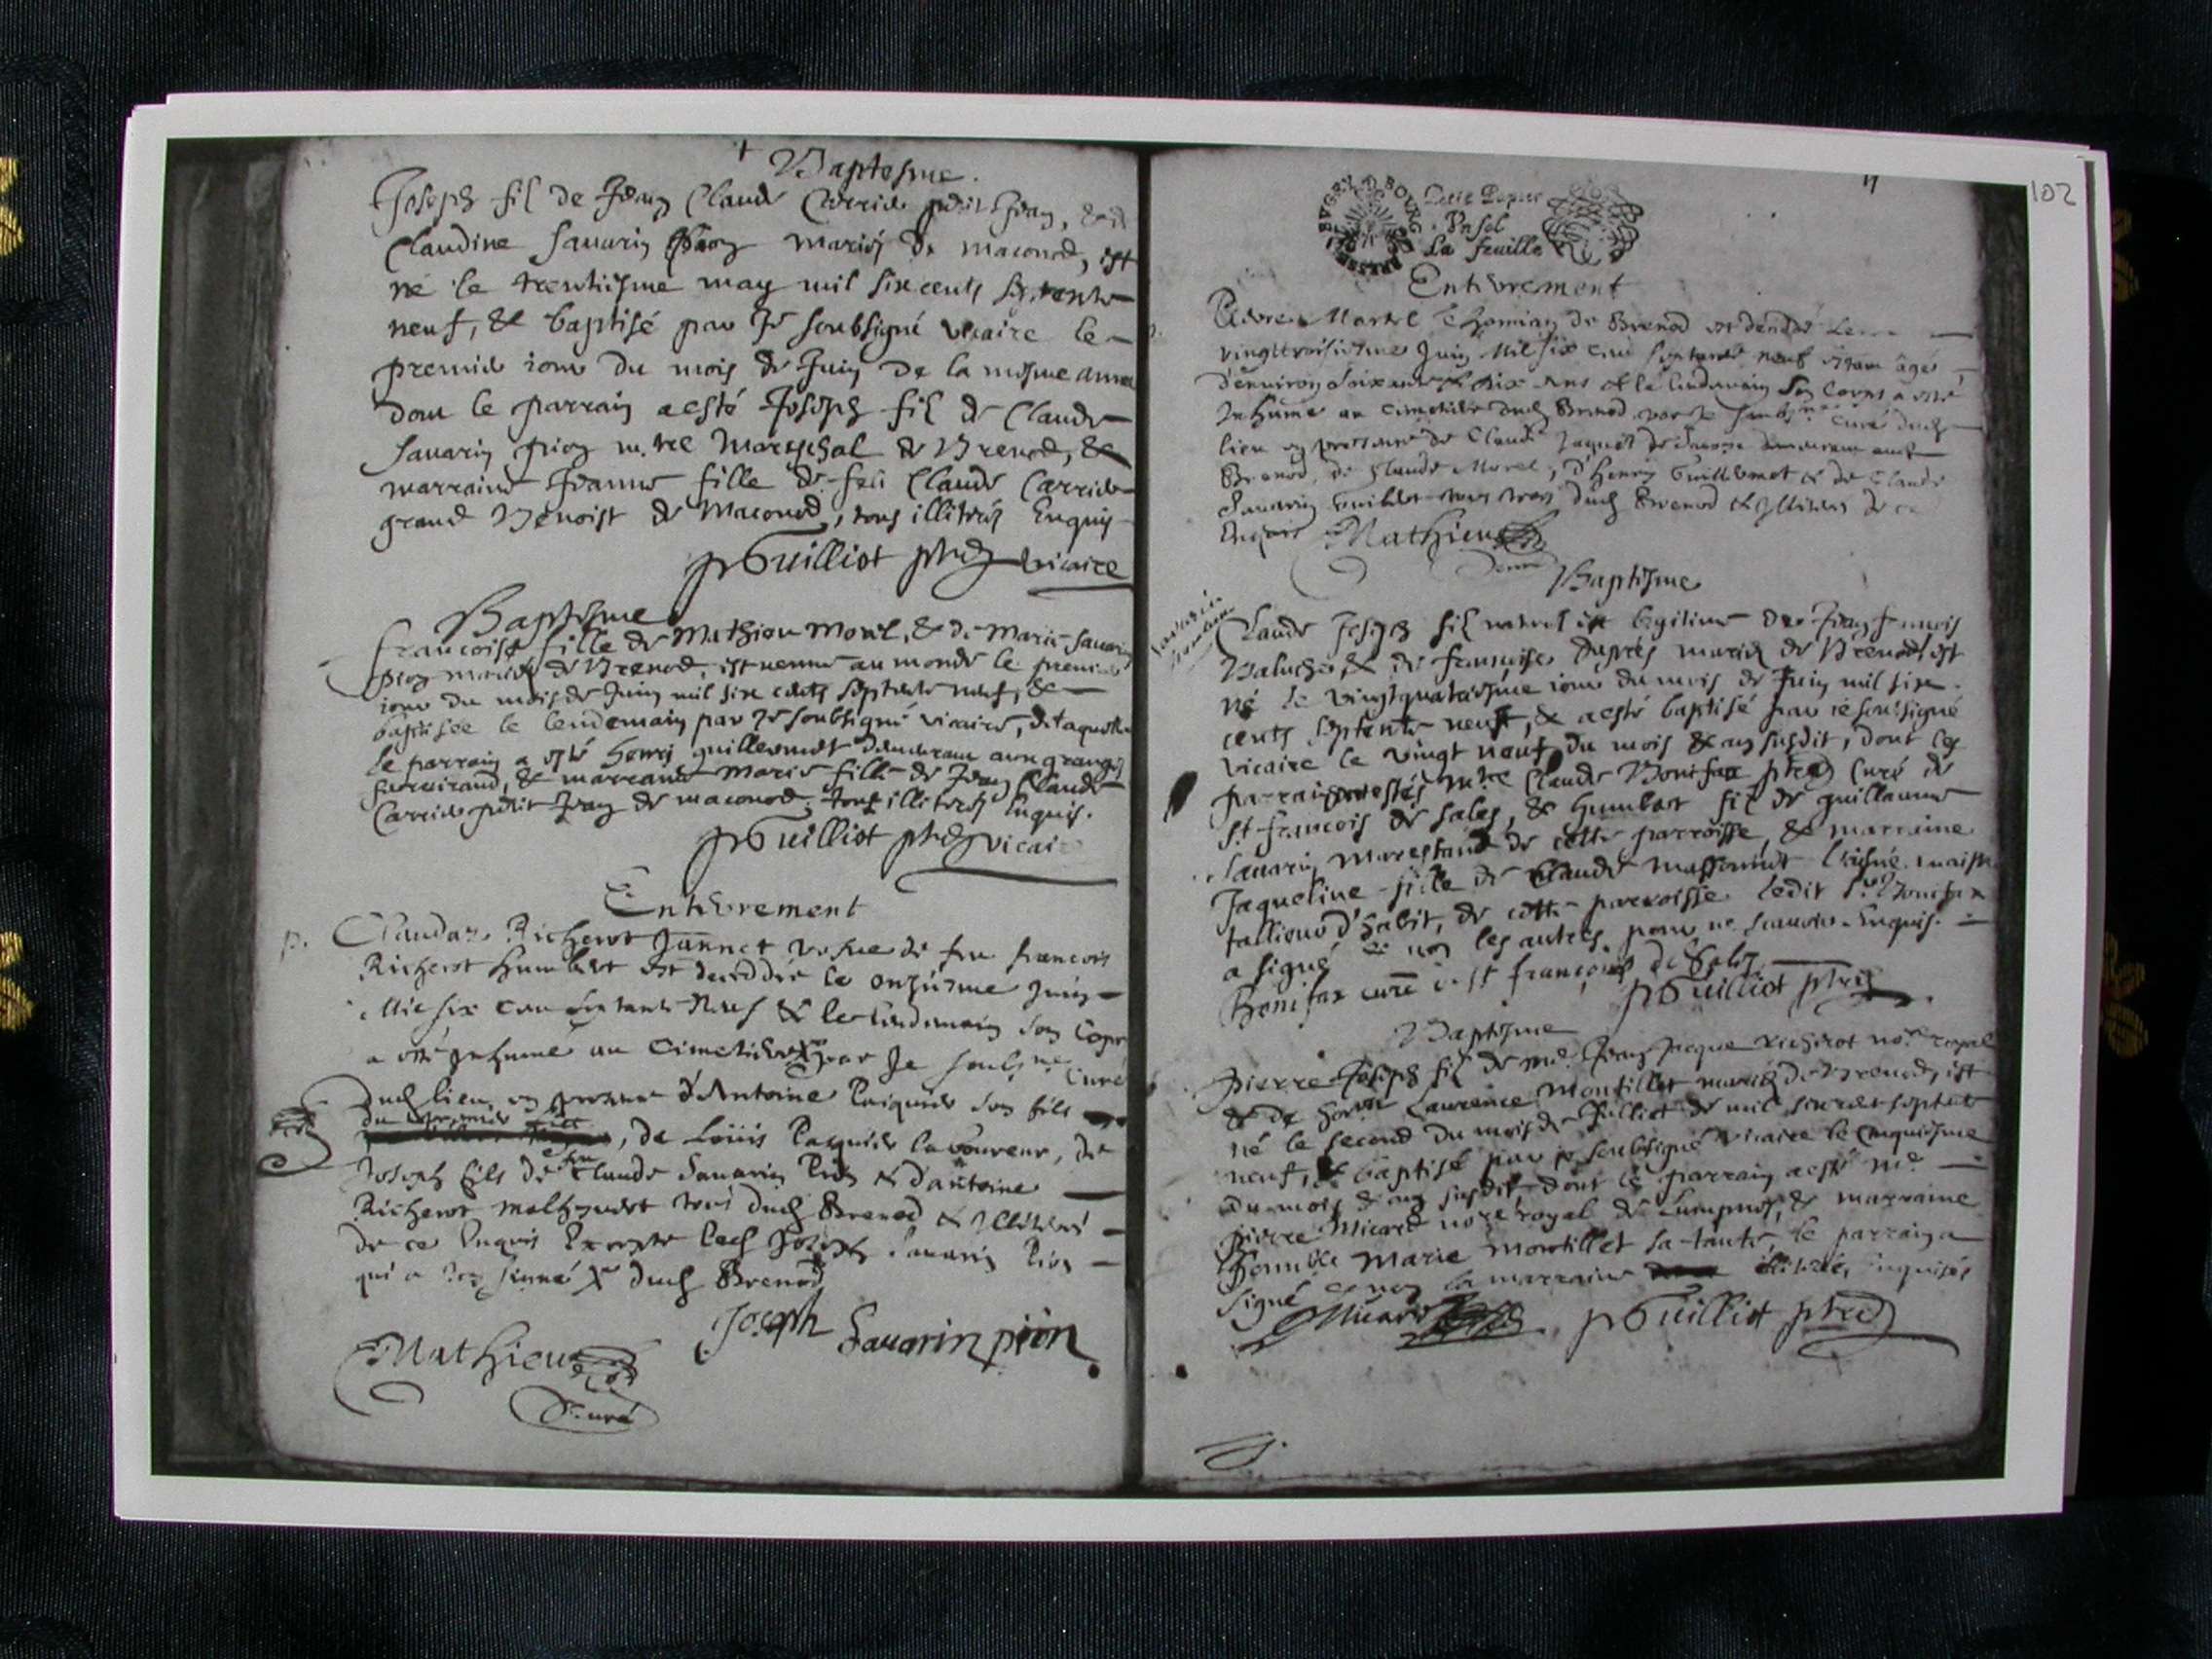 Baptesme.
Joseph fil de Jean Claude Carrier petit Jean, & de
Claudine Savarin pion mariés de maconod, est
né le trentiesme may mil six cents septente
neuf, & baptisé par je soubsigné vicaire le
premier iour du mois de Juin de la mesme année
dont le parrain a esté Joseph fil de Claude
Savarin pion m.tre Mareschal de Brenod, &
marraine Jeanne fille de feu Claude Carrier
grand Benoist de Maconod, tous illiterés Enquis
p Guilliot ptre vicaire
Baptesme
Francoise fille de Mathieu Morel, & de Marie Savarin
pion mariés de Brenod, est venue au monde le premier
iour du mois de Juin mil six cents septente neuf, &
baptisée le lendemain par je soubsigné vicaire, de laquelle
le parrain a esté Henri guillermet demeurant aux granges
& marraine Marie fille de Jean Claude
Carrier petit Jean de maconod, tous illiterés Enquis.
p Guilliot ptre vicai
Enterrement
p. Claudaz Richerot Jannet vefve de feu francois
Richerot humbert est deceddée le onziesme Juin
Mil six cent septante Neuf & le lendemain son Corps
a esté inhumé au Cimetiere par Je soubs.né Curé
dud lieu en presence d'Antoine Paiquier son fils
du premier lict
, de Loüis Pasquier laboureur, de
Joseph fils de feu Claude Savarin Pion & d'antoine
Richerot tous dud Brenod & Illiteré
de ce Enquis Excepte led Joseph Savarin Pion
qui a signé dud Brenod
Joseph Savarin pion
Mathieu
Curé
102
BVGEY BOURG
Petit Papier
La feuille
Enterrement
Martel de Brenod est decedé le
vingttroisiesme Juin Mil six cent septante neuf estant agé
d'environ soixante & dix ans et le lendemain son Corps a esté
Inhumé au cimetiere dud Brenod par Je soubs.né Curé dud
lieu en presence de Claude Jaquet demeurant aud
Brenod, de Claude Morel, d'Henry Guillermet & de Claude
Savarin tous dud Brenod & Illiterés de ce
Enquis Mathieu
Curé
Baptesme
Claude Joseph fil naturel et legitime de Jean francois
Baluchet & de francoise mariés de Brenod est
né le vingtquatriesme iour du mois de Juin mil six
cents septente neuf, & a esté baptisé par je soubsigné
vicaire le vingt neuf du mois & an susdit, dont les
parrains ont estés m.tre Claude Bonifax ptre Curé de
St francois de sales, & humbert fil de guillaume
Savarin Mareschand de cette parroisse, & marraine
Jaqueline fille de Claude maistre
tallieur d'habit, de cette parroisse ledit Sr Bonifax
a signé & non les autres pour ne scavoir Enquis.
Bonifax curé de st françois de Sales
p Guilliot ptre
Baptesme
Pierre Joseph fil de me Jean Jacque Richerot nore royal
& de Laurence Montillet mariés de Brenod, est
né le second du mois de Julliet de mil six cent septente
neuf, & baptisé par je soubsigné vicaire le cinquiesme
du mois & an susdit, dont le parrain a esté me
pierre Micard nore royal de & marraine
Marie Montillet sa tante, le parrain a
signé & non la marraine illiterée, enquise
Micard p Guilliot ptre